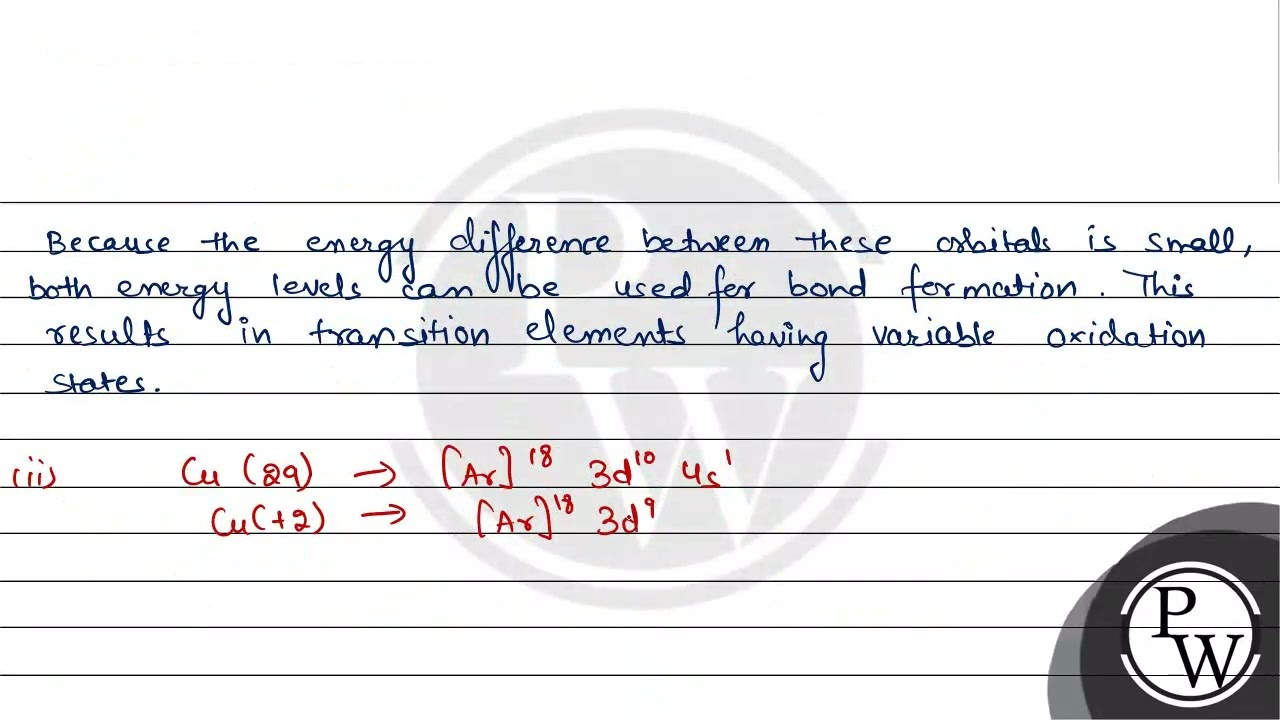 Because the energy difference between these orbitals is small,
both energy levels can be used for bond formation. This
results in transition elements having variable oxidation
states.
(ii) Cu (29) → [Ar]¹⁸ 3d¹⁰ 4s¹
Cu(+2) → [Ar]¹⁸ 3d⁹
P
W
P
W